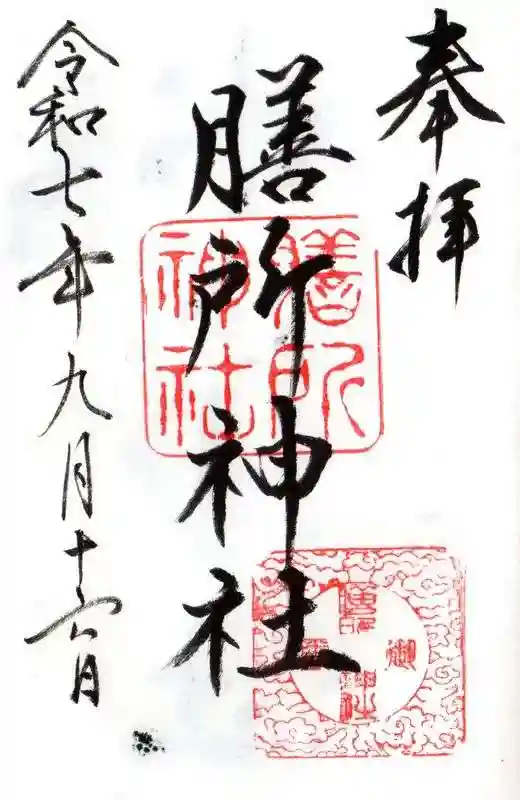 奉拝
膳所神社
膳所
神社
令和七年九月十六日